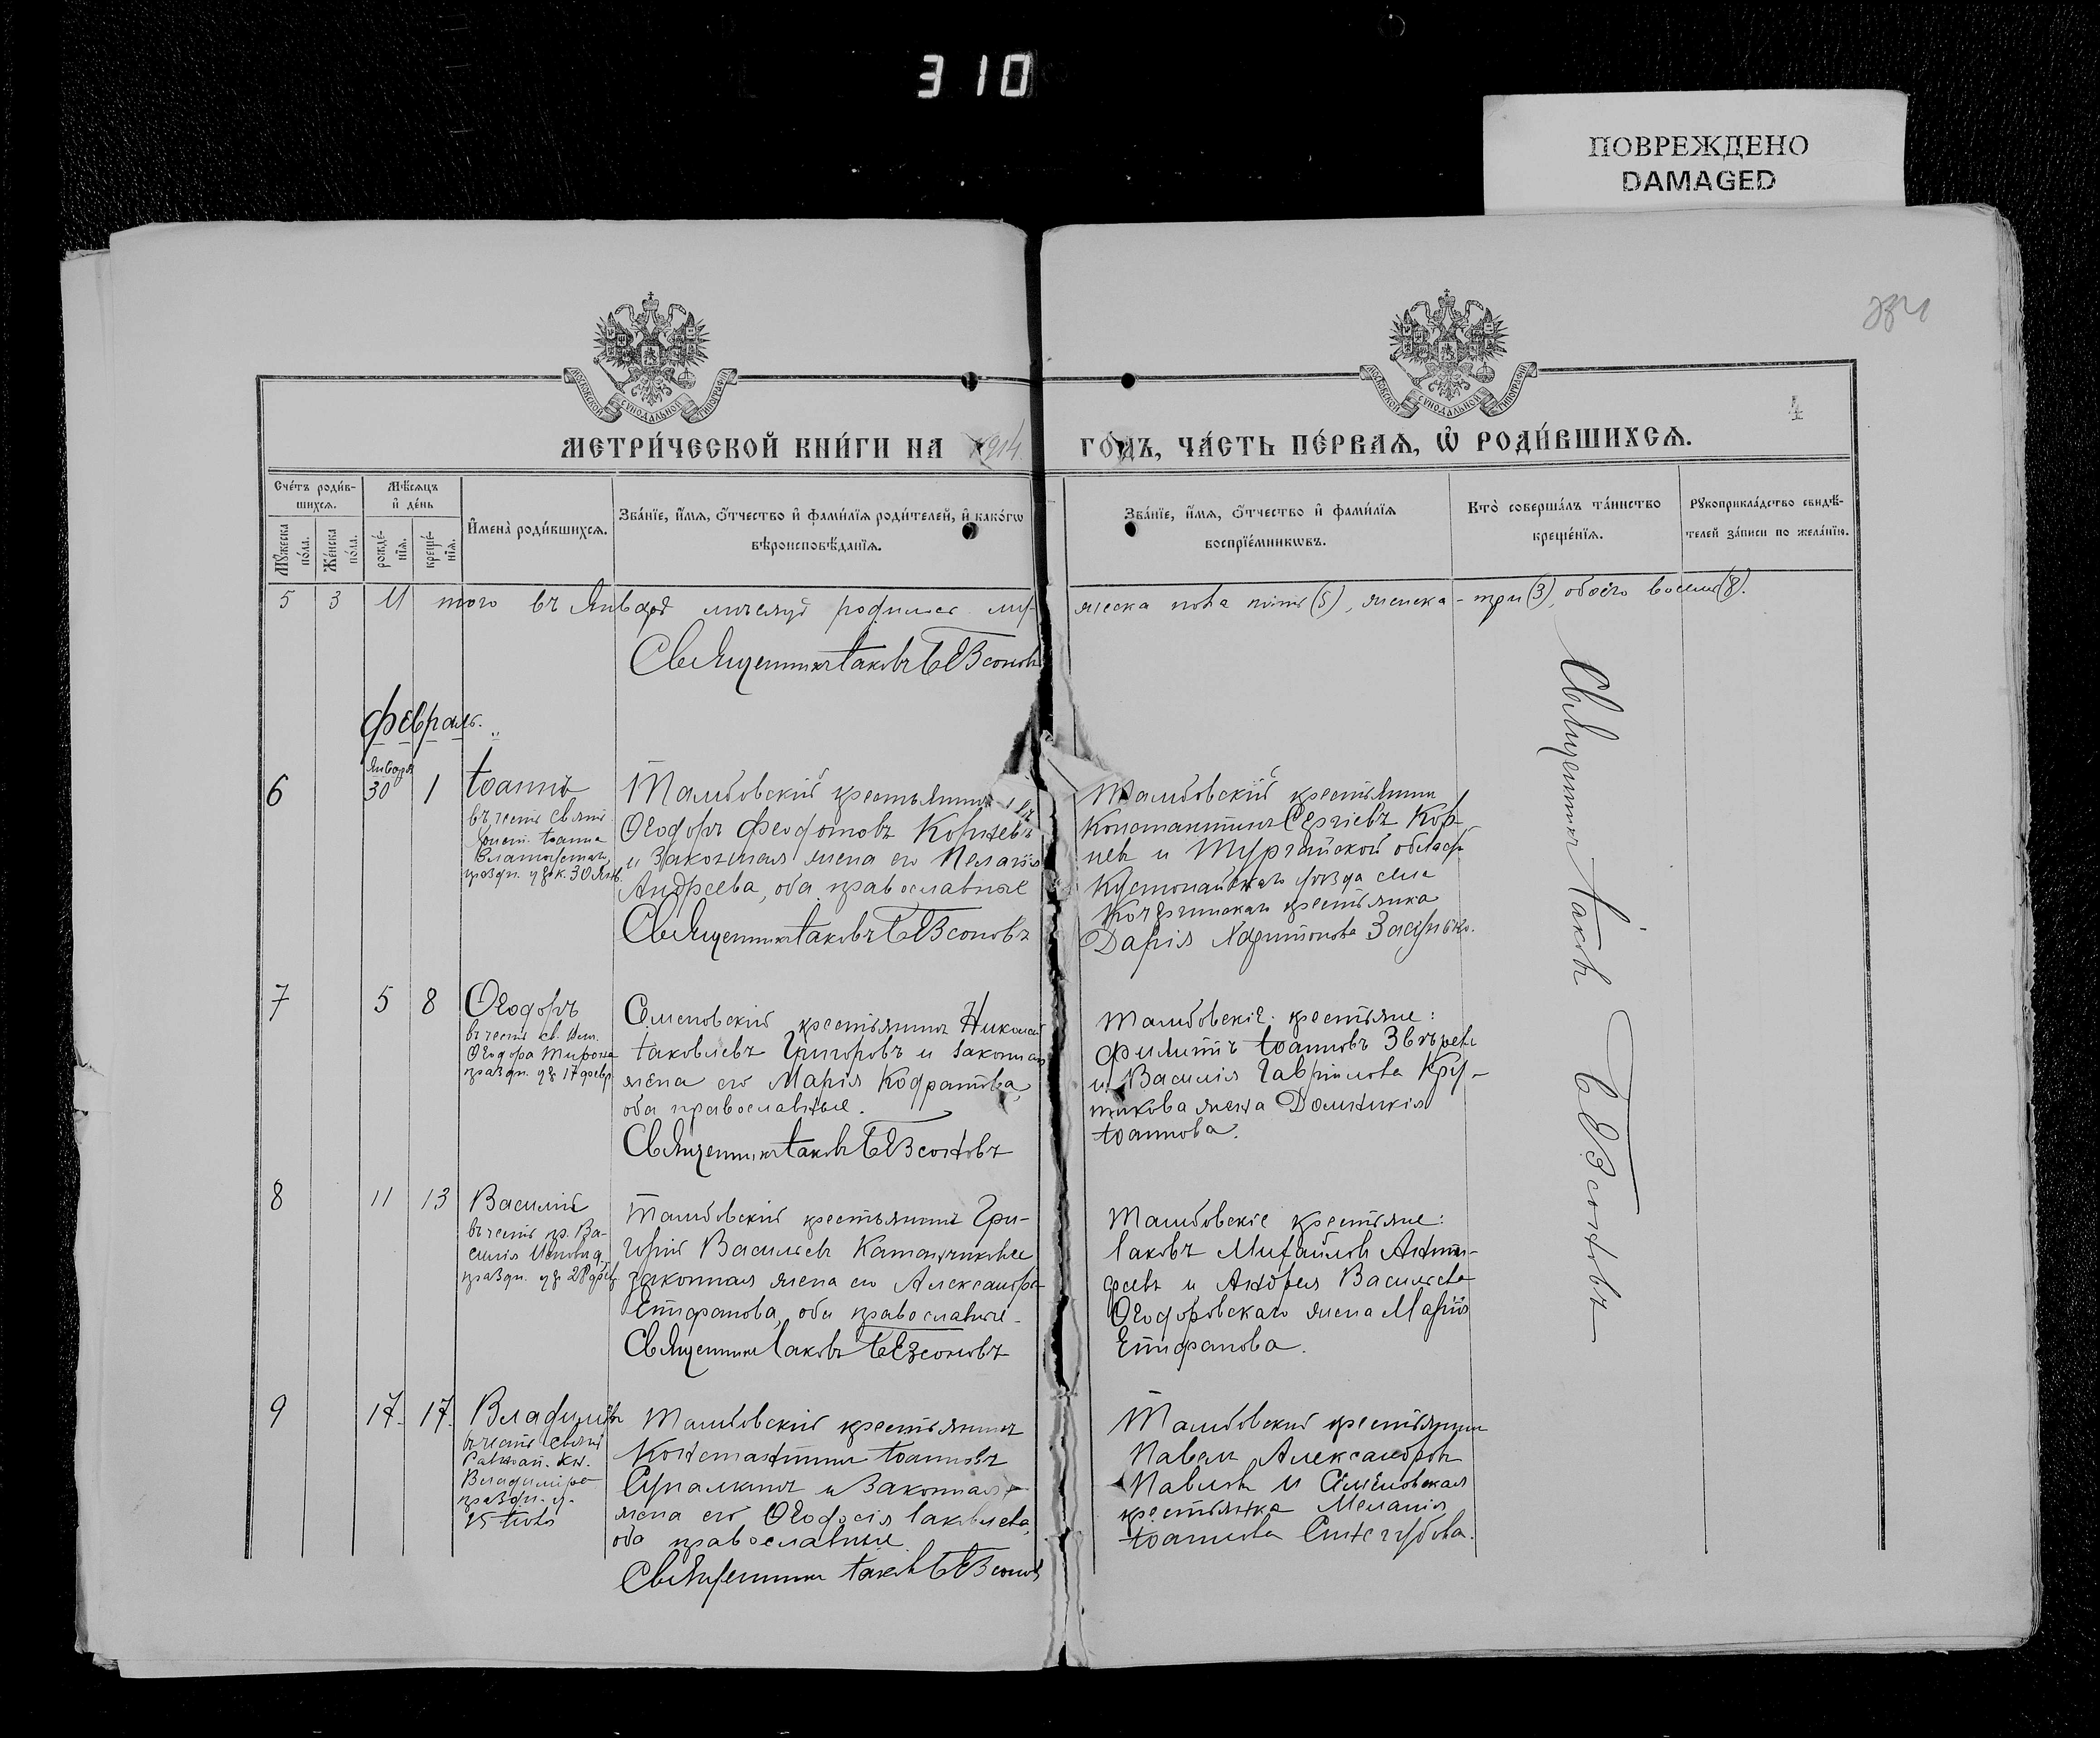 310
ПОВРЕЖДЕНО
DAMAGED
4
МОСКОВСКОЙ СѴНОДАЛЬНОЙ ТИПОГРАФІИ
МОСКОВСКОЙ СѴНОДАЛЬНОЙ ТИПОГРАФІИ
МЕТРИ́ЧЕСКОЙ КНИ́ГИ НА 1914 ГО́ДЪ, ЧА́СТЬ ПЕ́РВАѦ, Ѡ҆ РОДИ́ВШИХСѦ.
Сче́тъ роди́в-
шихсѧ.
Мꙋ́жеска по́ла.
Же́нска по́ла.
Мѣ́сѧцъ
и҆ де́нь
рожде́-
нїѧ.
креще́-
нїѧ.
И҆мена̀ роди́вшихсѧ.
Зва́нїе, и҆́мѧ, ѻ҆́тчество и҆ фами́лїѧ роди́телей, и҆ како́гѡ
вѣроисповѣ́данїѧ.
Зва́нїе, и҆́мѧ, ѻ҆́тчество и҆ фами́лїѧ
воспрїе́мникѡвъ.
Кто̀ соверша́лъ та́инство
креще́нїѧ.
Рꙋкоприкла́дство свидѣ́-
телей за́писи по жела́нїю.
5 3 Итого въ Январѣ мѣсяцѣ родилось му-
жеска пола пять (5), женска - три (3), обоего восемь (8).
Священникъ Іаковъ Безсоновъ
Февраль.
6
Января
30 1
Іоаннъ
въ честь Святит.
Іоанна
Златоустаго,
праздн. 30 Янв.
Тамбовскій крестьянинъ
Ѳеодоръ Феодотовъ Корневъ
и законная жена его Пелагія
Андреева, оба православные
Священникъ Іаковъ Безсоновъ
Тамбовскій крестьянинъ
Константинъ Сергіевъ Кор-
невъ и Тургайской области
Кустанайскаго уѣзда села
крестьянка
Дарія Харитонова
7 5 8
Ѳеодоръ
въ честь св. Вел.
Ѳеодора Тирона
праздн. 17 февр.
Семеновскій крестьянинъ Николай
Іаковлевъ Григоровъ и законная
жена его Марія Кодратова,
оба православные.
Священникъ Іаковъ Безсоновъ
Тамбовскіе крестьяне:
Филиппъ Іоанновъ Звѣревъ
и Василія Гавріилова Кру-
тикова жена Домникія
Іоаннова.
8 11 13
Василій
въ честь пр. Ва-
силія Исповѣд.
праздн. 28 фев.
Тамбовскій крестьянинъ Гри-
горій Васильевъ
законная жена его Александра
Епифанова, оба православные.
Священникъ Іаковъ Безсоновъ
Тамбовскіе крестьяне:
Іаковъ Михайловъ Анти-
феевъ и Андрея Васильева
Ѳеодоровскаго жена Марія
Епифанова.
9 17 17
Владиміръ
въ честь Свят.
Равноап. Кн.
Владиміра
праздн.
15 Іюля
Тамбовскій крестьянинъ
Константинъ Іоанновъ
и законная
жена его Ѳеодосія Іаковлева,
оба православные.
Священникъ Іаковъ Безсоновъ
Тамбовскій крестьянинъ
Павелъ Александровъ
Павловъ и Семеновская
крестьянка Меланія
Іоаннова Синегубова.
Священникъ Іаковъ Безсоновъ